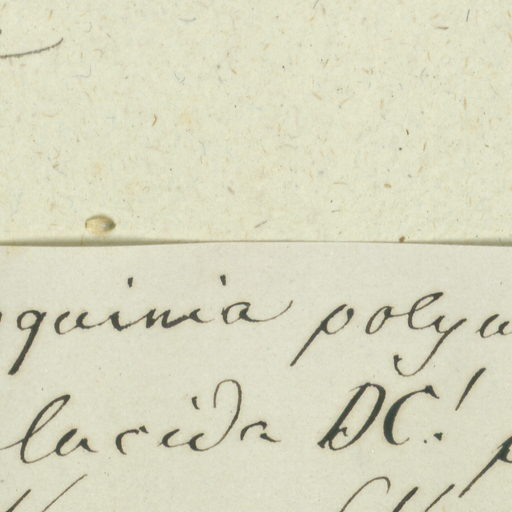 quinia poly
lucida DC!